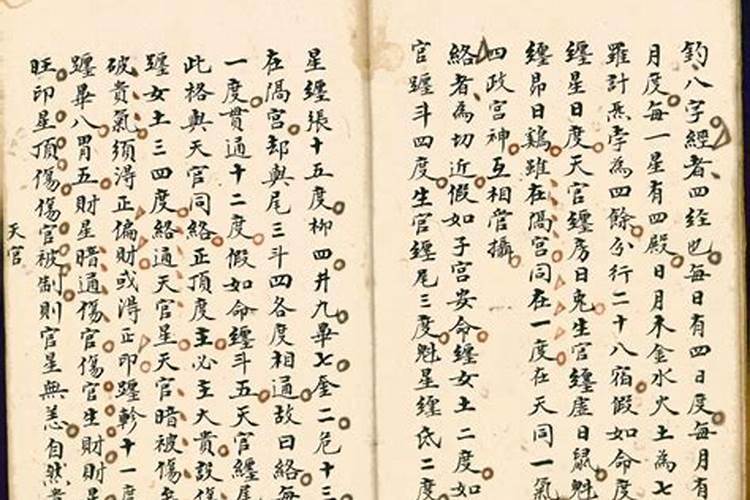 鈞八字經者四经也每日有四日度每月有
月度每一星有四殿日月木金水火土為七
羅計炁孛為四餘分行二十八宿假如命度
纏星日度天官纏房日兎生官纏虛日鼠魁
纏昴日鷄雖在隔宮同在一度在天同一氣
四政宮神互相官攝
絡者為切近假如子宮安命纏女土二度如
官躔斗四度生官纏尾三度魁星纏氐二度
星纏張十五度柳四井九畢七奎二危十三
在隔宮却與尾三斗四各度相通故曰絡每
一度貫通十二度假如命纏斗五天官纏尾
此格與天官同絡正頂度主必主大貴設傷
躔女土三四度絡通天官星天官暗被傷
破貴氣須淂正偏財或淂正印躔軫十一度
躔畢八胃五財星暗通傷官傷官生財財星
旺印星頂傷傷官被制則官星無恙自然貴
天官